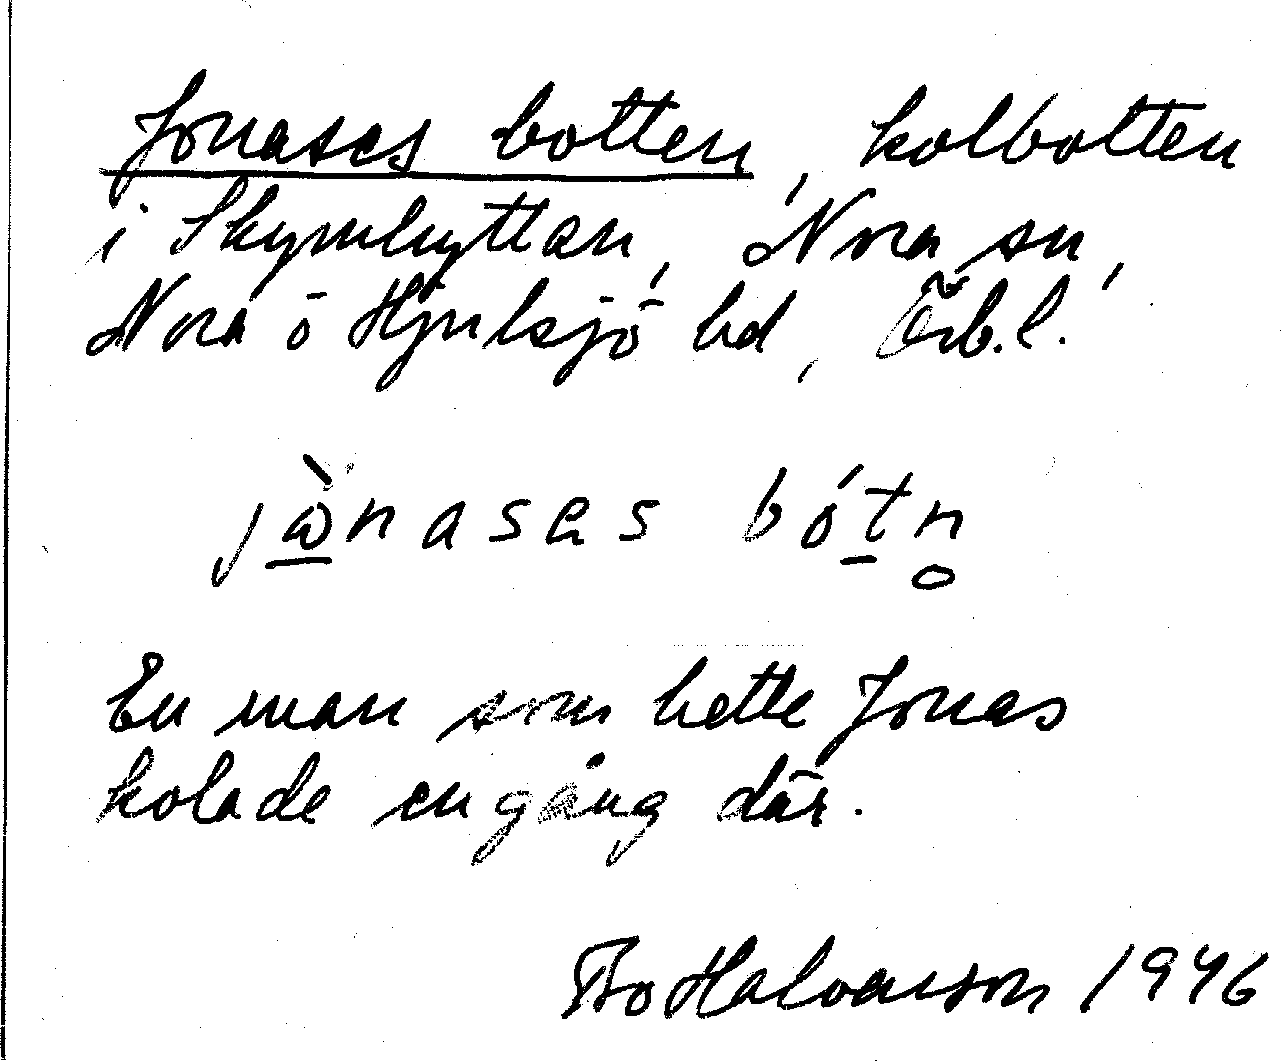 Jonases botten, kolbotten
i Skymhyttan, Nora sn,
Nora ō Hjulsjō hd, Örb.l.
jὼnasas bótn̥
En man som hette Jonas
kolade en gång där.
Bo Halvarson 1946